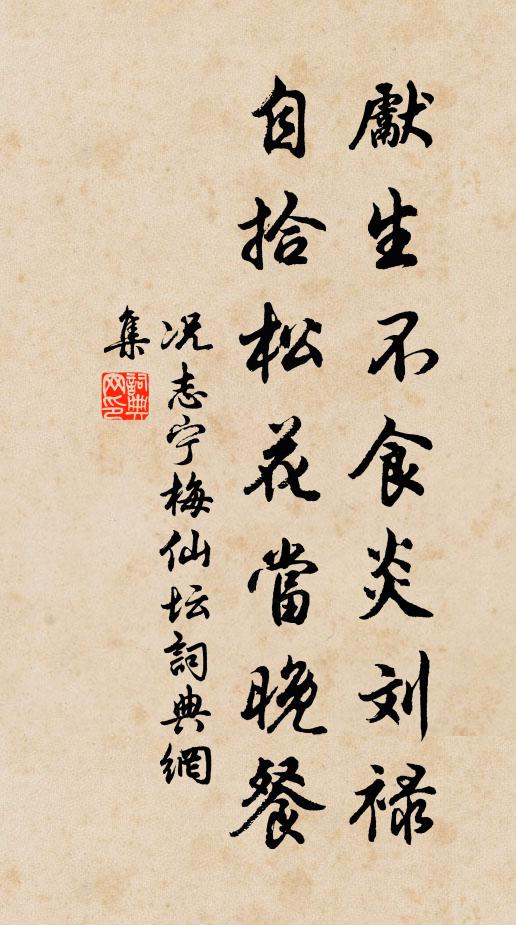 獻生不食炎刘禄
自拾松花當晚餐
况志宁梅仙坛詞典網
集
詞典
网印